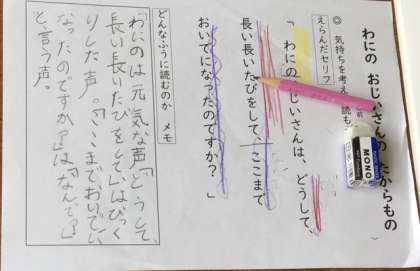 わにの おじいさんの たからもの
◎ 気持ちを考え 読も
えらんだセリフ
「わにのおじいさんは、どうして、
長い長いたびをして、ここまで
おいでになったのですか?」
どんなふうに読むのか メモ
わには元気な声「どうして、
長い長いたびをして」はびっく
りした声。「ここまでおいでに
なったのですか?」は「なんで?」
と言う声。
MONO